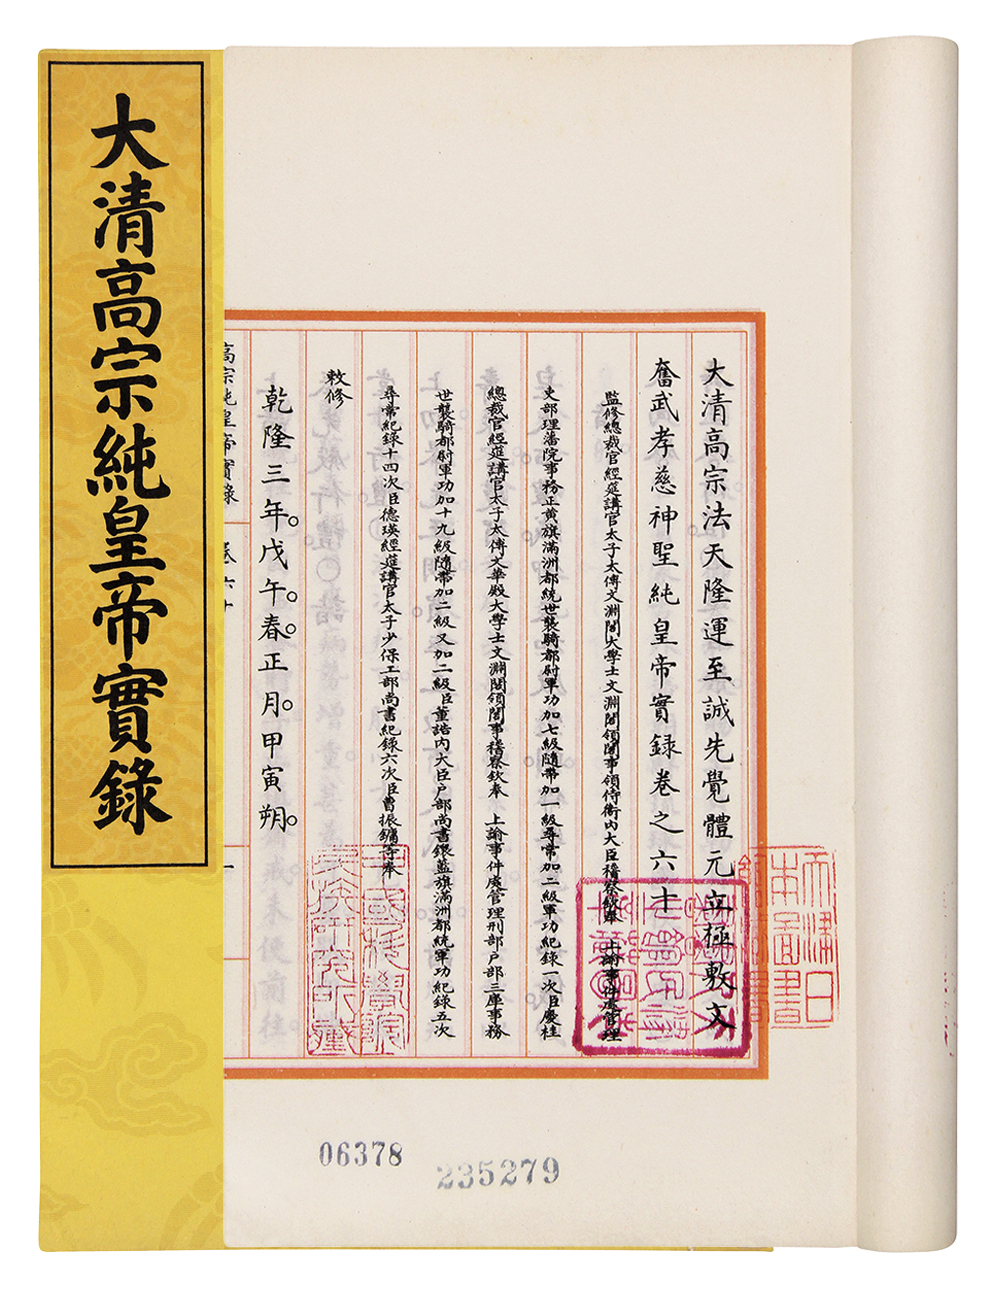 大清高宗純皇帝實錄
大清高宗法天隆運至誠先覺體元立極敷文
奮武孝慈神聖純皇帝實録卷之六十
監修總裁官經筵講官太子太傅文淵閣大學士文淵閣領閣事領侍衛內大臣稽察欽奉 上諭事件處管理
吏部理藩院事務正黃旗滿洲都統世襲騎都尉軍功加七級隨帶加一級尋常加二級軍功紀錄一次臣慶桂
總裁官經筵講官太子太傅文華殿大學士文淵閣領閣事稽察欽奉 上諭事件處管理刑部戶部三庫事務
世襲騎都尉軍功加十九級隨帶加二級又加二級臣董誥內大臣戶部尚書鑲藍旗滿洲都統軍功紀錄五次
尋常紀錄十四次臣德瑛經筵講官太子少保工部尚書紀錄六次臣曹振鏞等奉
敕修
乾隆三年。戊午。春。正月。甲寅朔。
高宗純皇帝實錄 卷六十 一
06378
235279